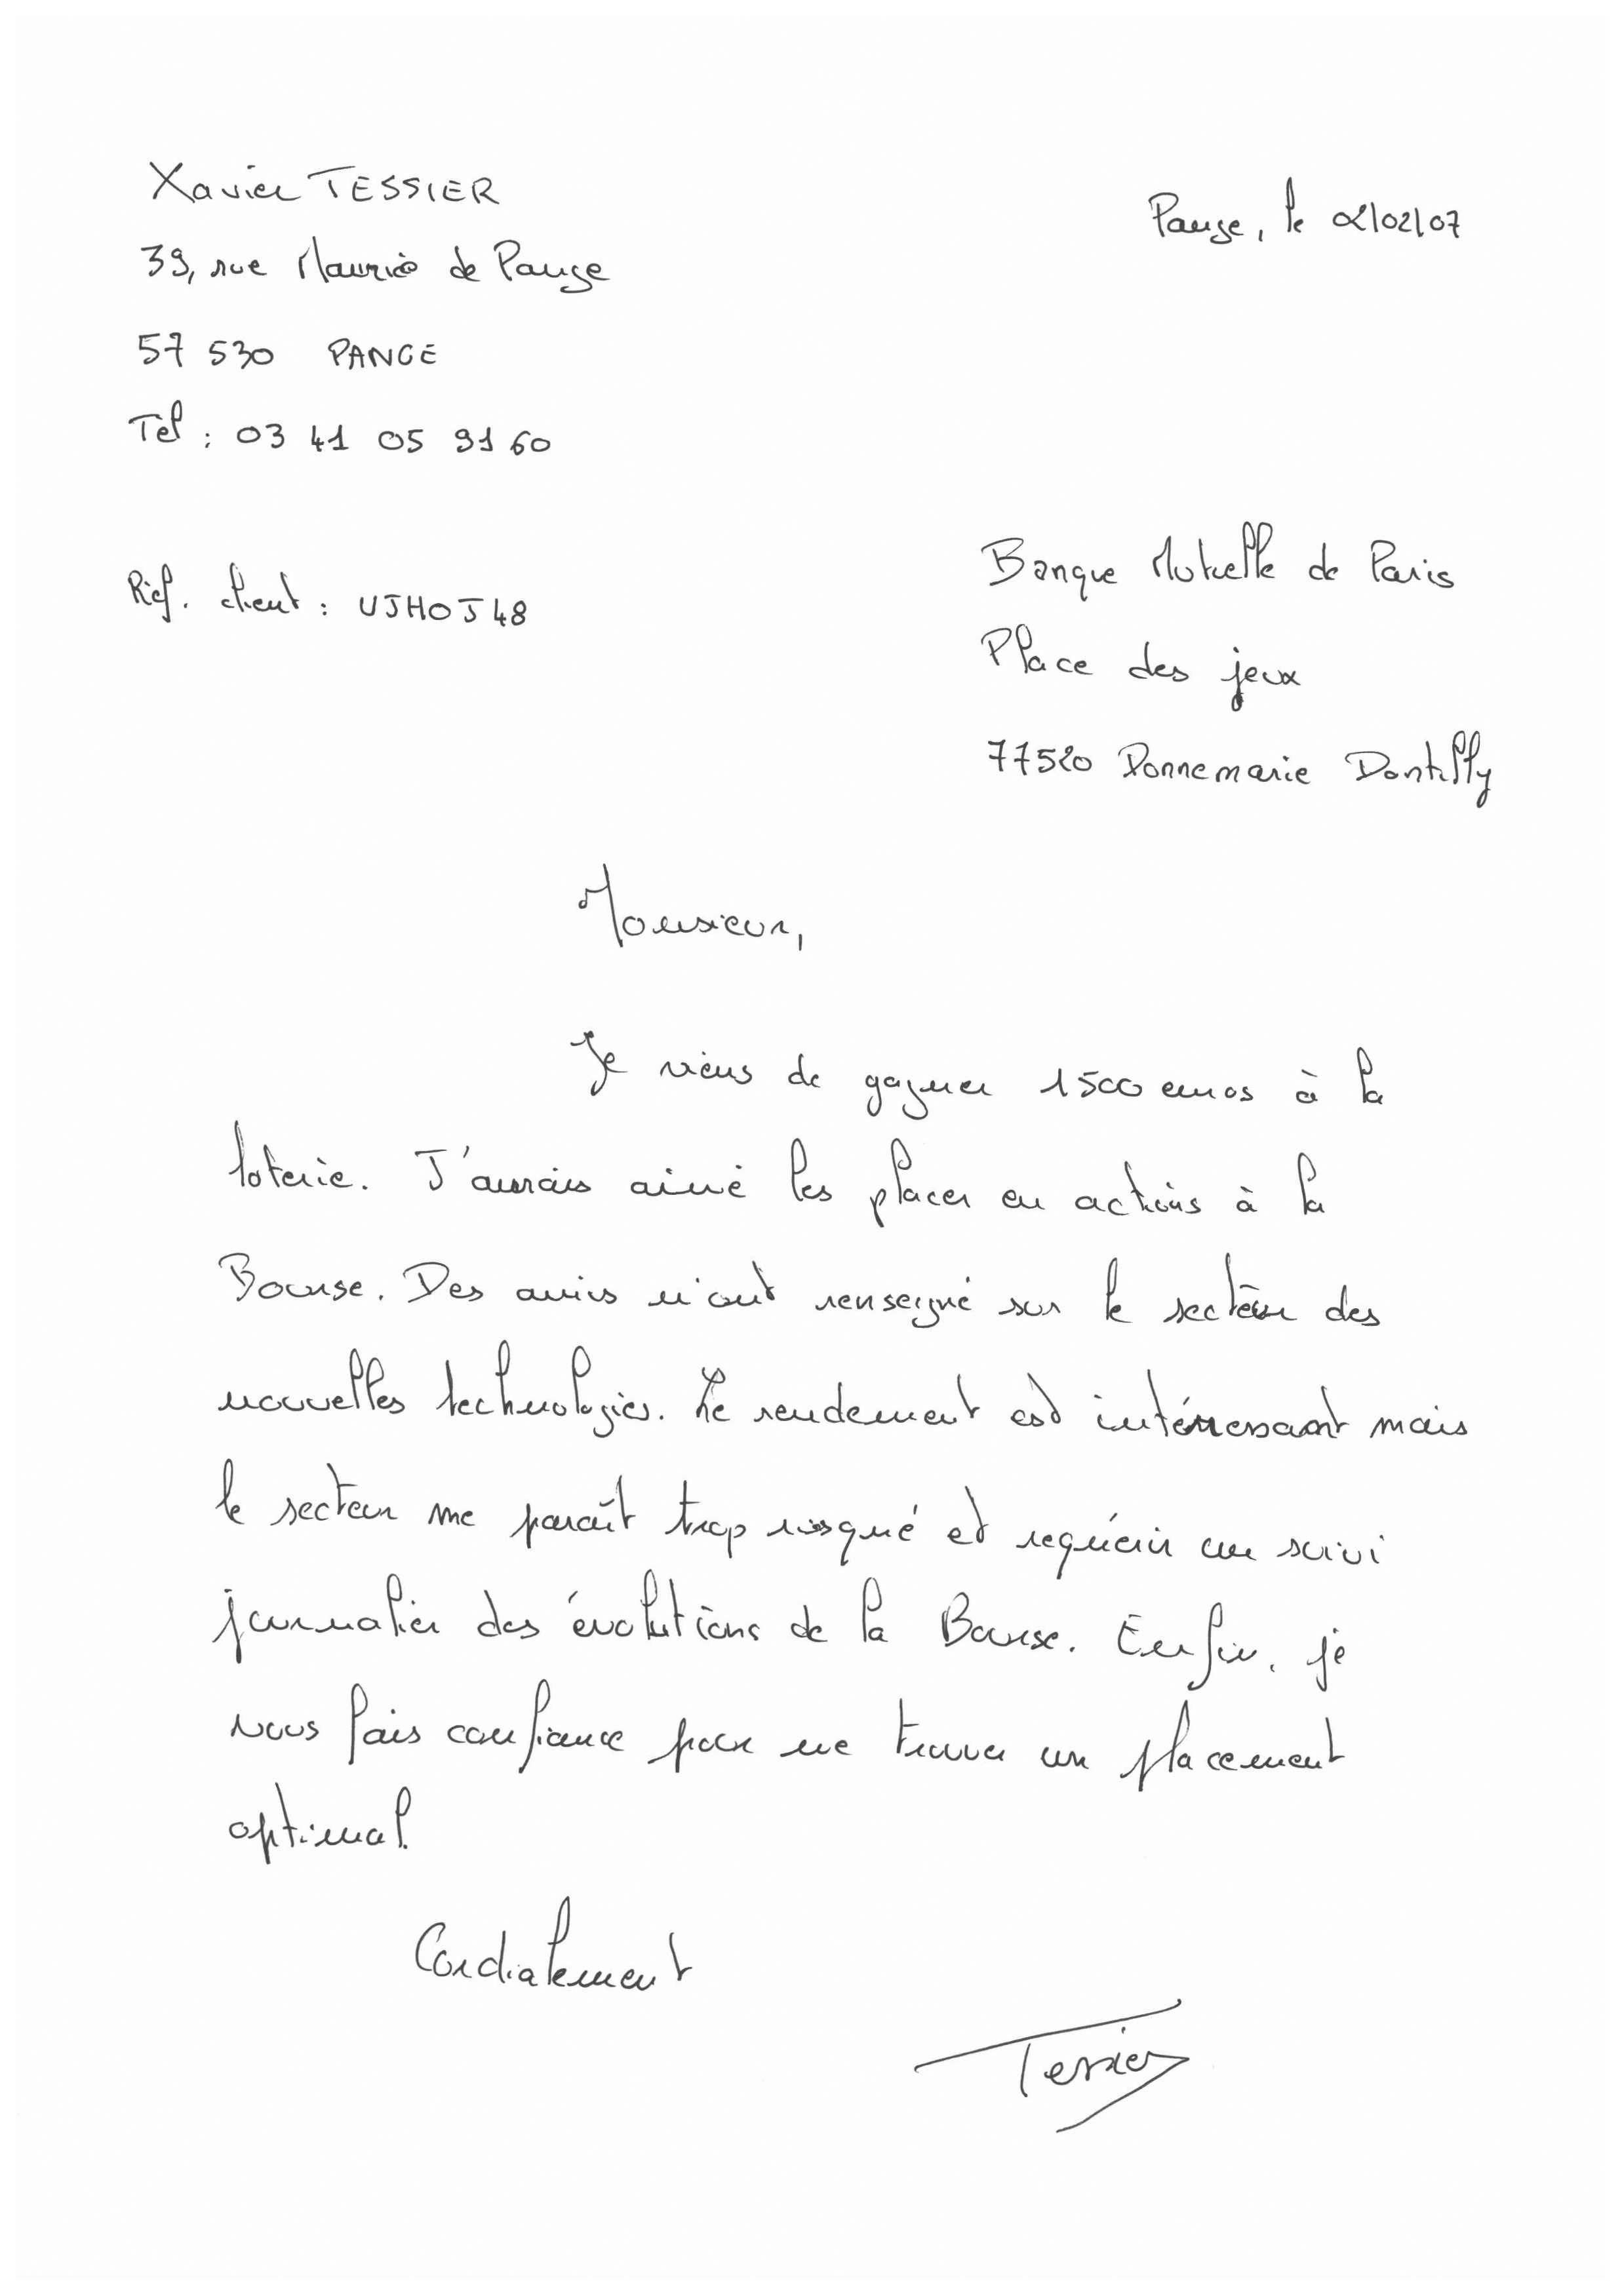 Xavier TESSIER
Pange, le 02/02/07
39, rue Maurice de Pange
57 530 PANGE
Tel : 03 41 05 91 60
Banque Mutuelle de Paris
Réf. client : UJHOJ48
Place des jeux
77520 Donnemarie Dontilly
Monsieur,
Je viens de gagner 1500 euros à la
loterie. J'aurais aimé les placer en actions à la
Bourse. Des amis m'ont renseigné sur le secteur des
nouvelles technologies. Le rendement est intérressant mais
le secteur me paraît trop risqué et requiérir un suivi
journalier des évolutions de la Bourse. Enfin, je
vous fais confiance pour me trouver un placement
optimal.
Cordialement
Tessier